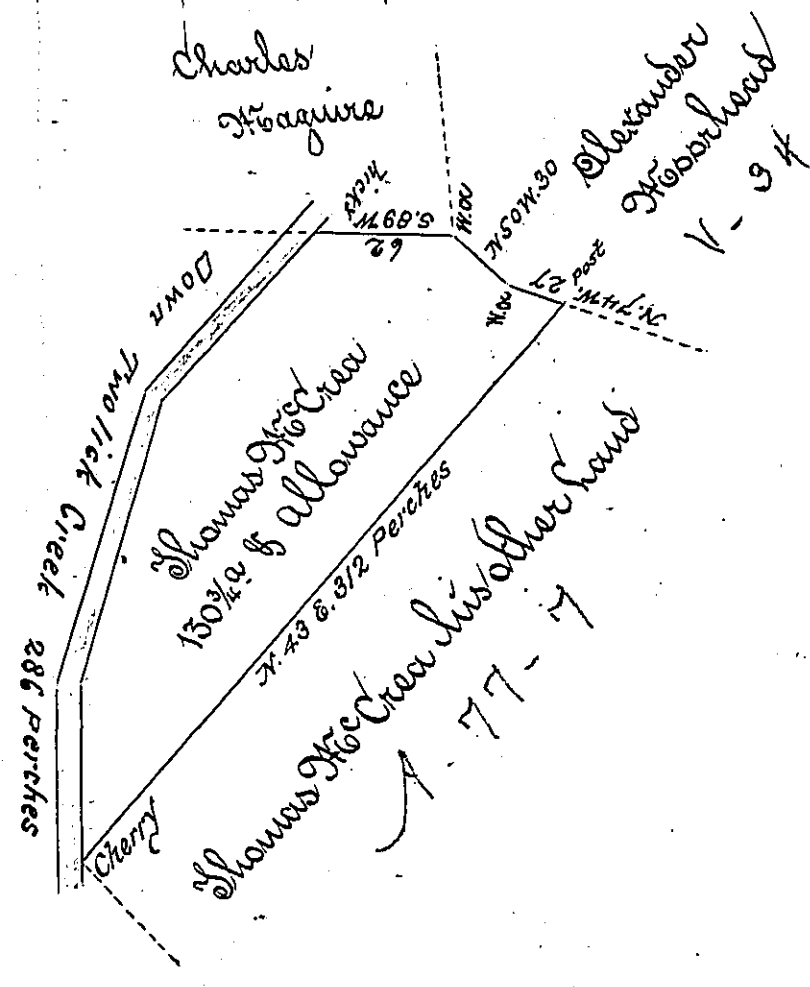 Charles
Maguire
Alexander
Moorhead
V-34
hicky
S.89W
62
W.O
N50W.30
W.O
Post
N.74W. 27
Down
Two lick Creek 286 perches
Thomas McCrea
130¾ a & allowance
N.43 E. 312 Perches
Thomas McCrea his other Land
A-77-7
Cherry